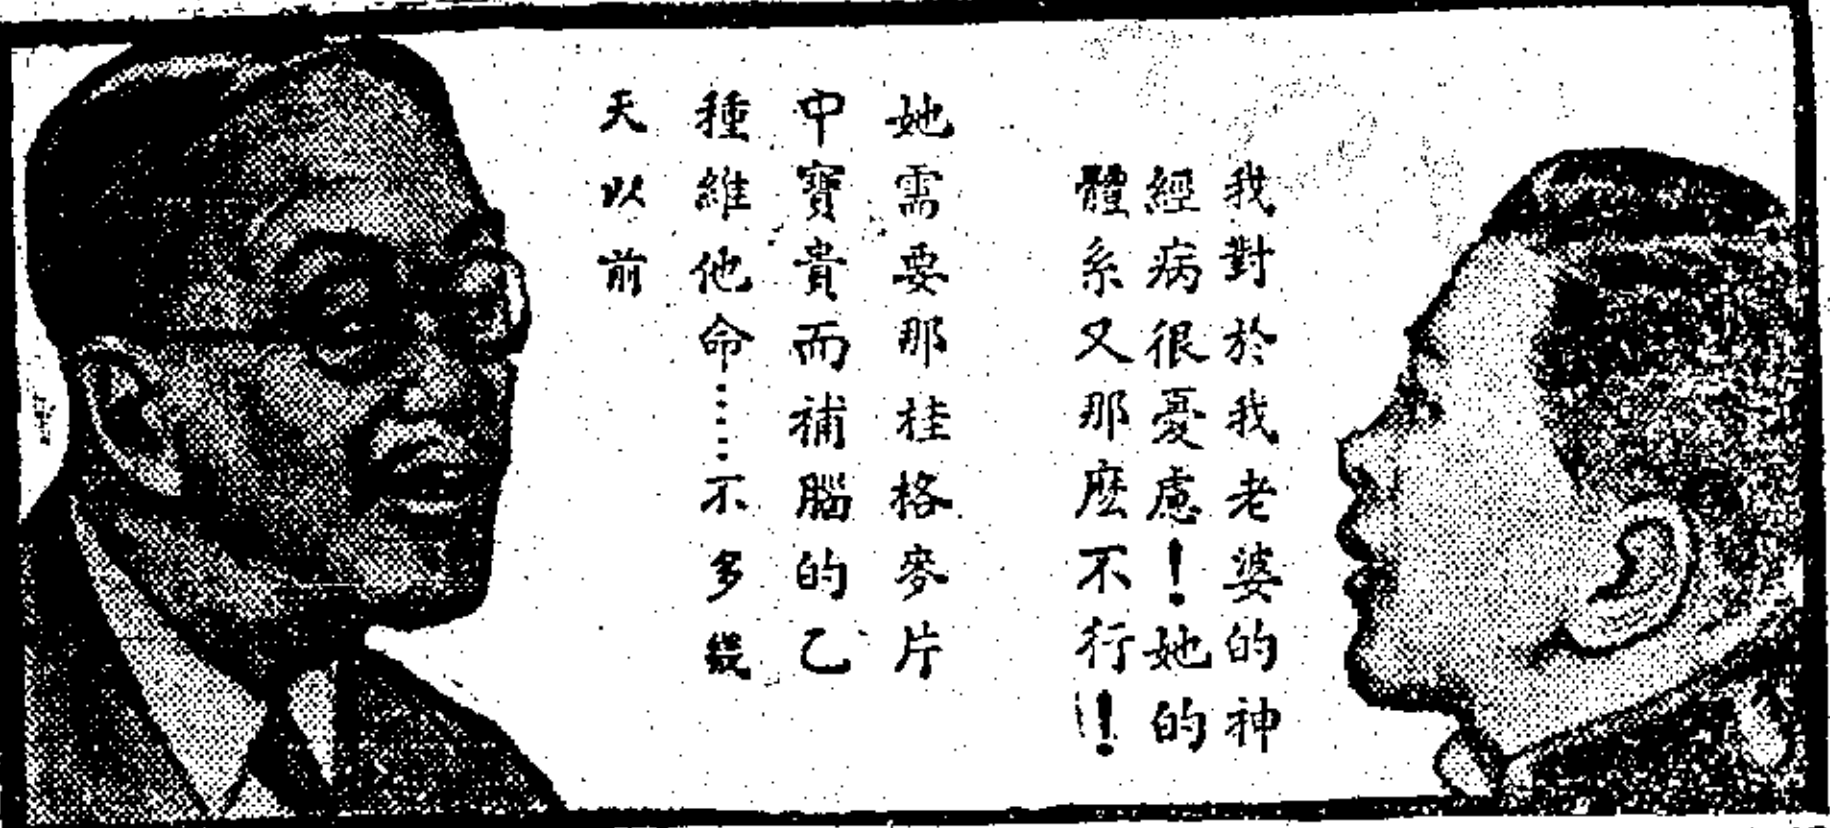 我對於我老婆的神
經病很憂慮!她的
體系又那麽不行!
她需要那桂格麥片
中寶貴而補腦的乙
種維他命……不多幾
天以前